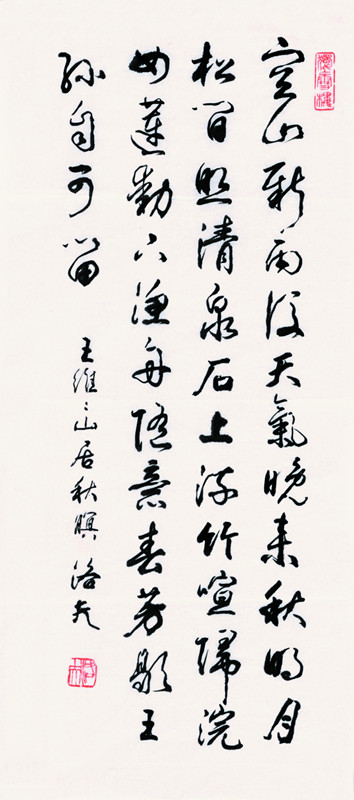 空山新雨後天氣晚來秋明月
松間照清泉石上流竹喧歸浣
女蓮動下漁舟隨意春芳歇王
孫自可留
王維之山居秋暝 洛夫